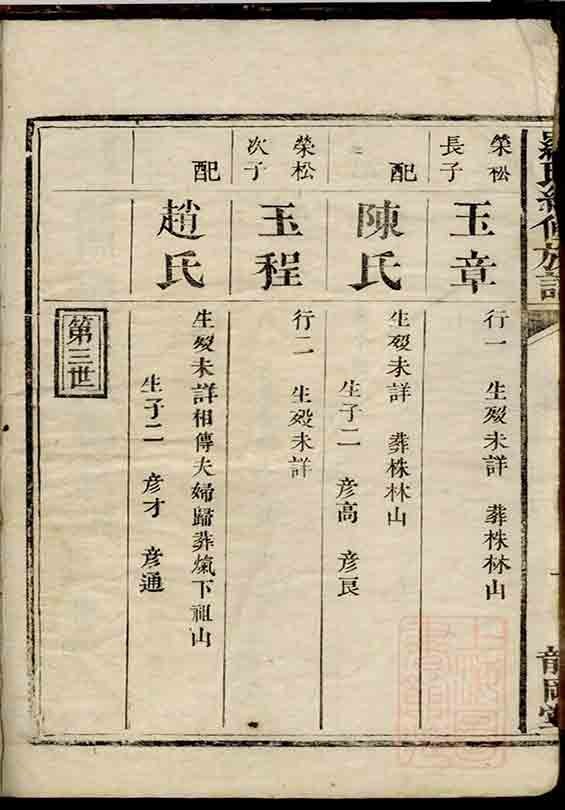 羅氏續修族譜
龍岡堂
榮松
長子
玉章
行一 生歿未詳 葬株林山
配
陳氏
生歿未詳 葬株林山
生子二 彥高 彥良
榮松
次子
玉程
行二 生歿未詳
配
趙氏
生歿未詳相傳夫婦歸葬㷔下祖山
生子二 彥才 彥通
第三世